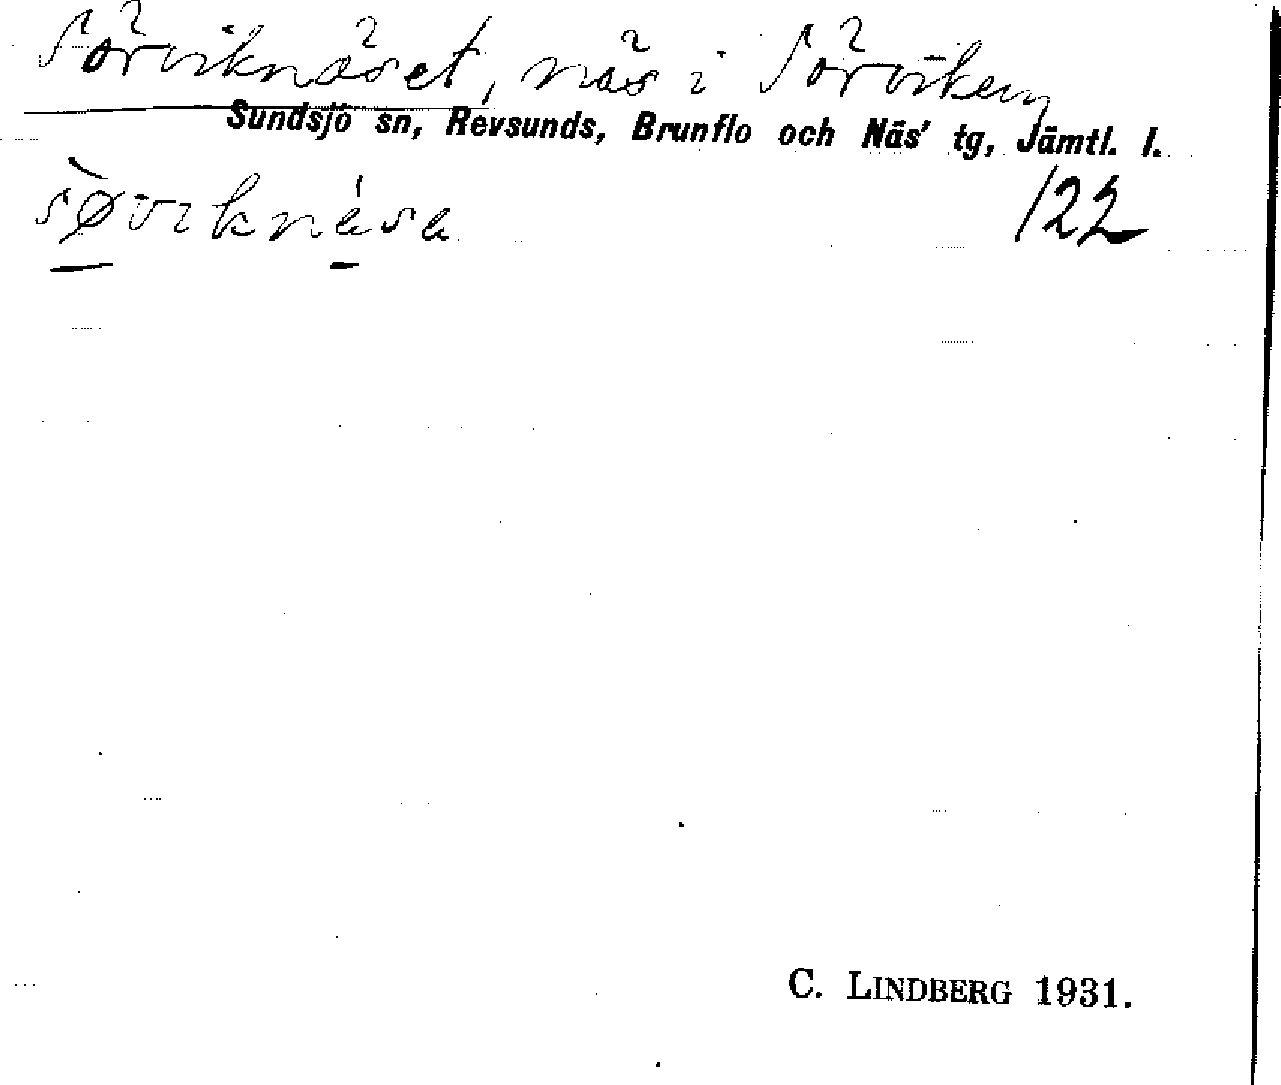 Sörviknäset, näs i Sörviken
Sundsjö sn, Revsunds, Brunflo och Näs' tg, Jämtl. l.
sø̀viknása
122
C. LINDBERG 1931.